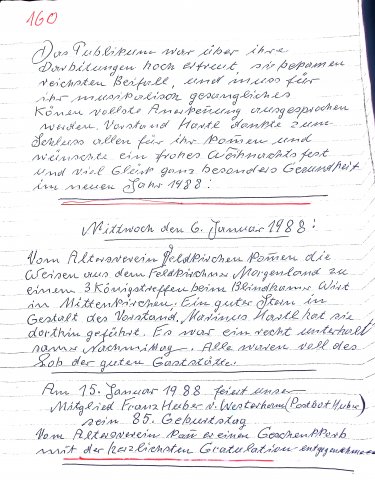 160
Das Publikum war über ihre
Darbitungen hoch erfreut, sie bekamen
reichsten Beifall, und muss für
ihr musikalisch gesangliches
Könen vollste Anerkenung ausgesprochen
werden. Vorstand Hartl dankte zum
Schluss allen für ihr komen und
wünschte ein frohes Weihnachtsfest
und viel Glück ganz besonders Gesundheit
im neuen Jahr 1988:
Mittwoch den 6. Januar 1988:
Vom Altersverein Feldkirchen kamen die
Weisen aus dem Feldkirchner Morgenland zu
einem 3 Königstreffen beim Blindhamer Wirt
in Mittenkirchen. Ein guter Stern in
Gestalt des Vorstand, Marinus Hartl hat sie
dorthin geführt. Es war ein recht unterhalt
samer Nachmittag. Alle waren voll des
Lob der guten Gaststätte.
Am 15. Januar 1988 feiert unser
Mitglied Franz Huber v. Westerham (Postbot Huber)
sein 85. Geburtstag
Vom Altersverein kan er einen Geschenkkorb
mit der herzlichsten Gratulation entgegennehmen